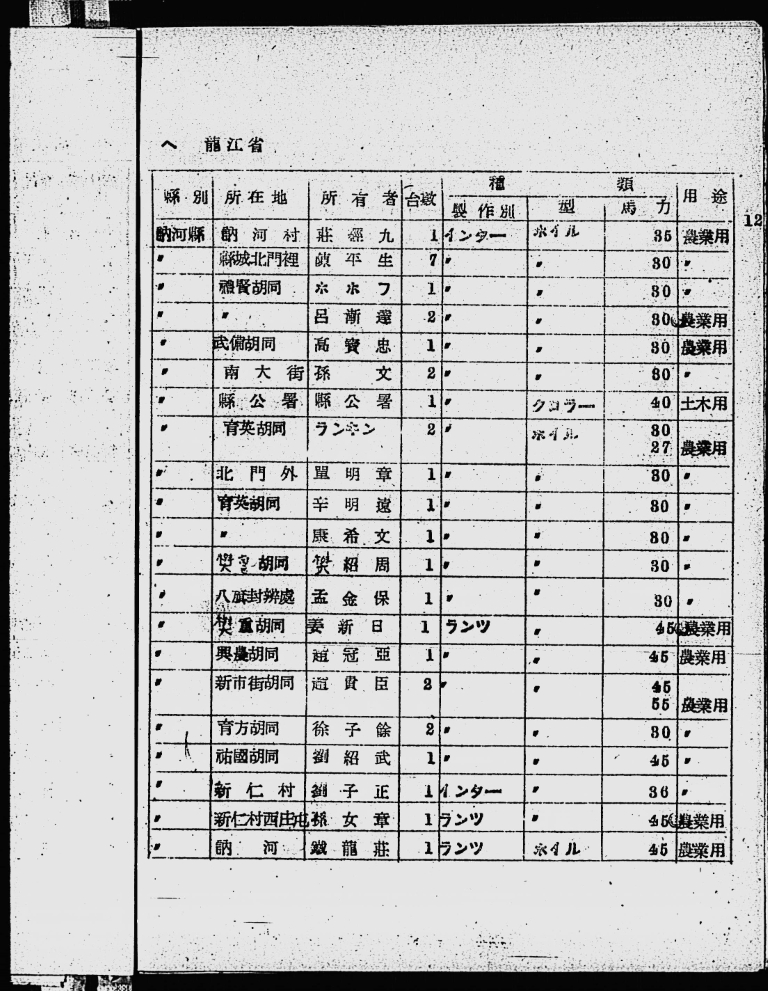 ヘ 龍江省
縣別 所在地 所有者 台數 種類 用途
製作別 型 馬力
12
訥河縣 訥河村 莊經九 1 インター ホイル 35 農業用
〃 縣城北門裡 平生 7 〃 〃 30 〃
〃 禮賢胡同 ホホフ 1 〃 〃 30 〃
〃 〃 呂漸逵 2 〃 〃 30 農業用
〃 武備胡同 高寶忠 1 〃 〃 30 農業用
〃 南大街 孫文 2 〃 〃 30 〃
〃 縣公署 縣公署 1 〃 クローラー 40 土木用
〃 育英胡同 ランキン 2 〃 ホイル 30
27 農業用
〃 北門外 單明章 1 〃 〃 30 〃
〃 育英胡同 辛明遠 1 〃 〃 30 〃
〃 〃 康希文 1 〃 〃 30 〃
〃 胡同 樊紹周 1 〃 〃 30 〃
〃 八 封辦處 孟金保 1 〃 〃 30 〃
〃 重胡同 姜新日 1 ランツ 〃 45 農業用
〃 興農胡同 趙冠亞 1 〃 〃 45 農業用
〃 新市街胡同 趙貴臣 2 〃 〃 45
55 農業用
〃 育方胡同 徐子餘 2 〃 〃 30 〃
〃 祐國胡同 劉紹武 1 〃 〃 45 〃
〃 新仁村 劉子正 1 インター 〃 36 〃
〃 新仁村西庄屯 孫女章 1 ランツ 〃 45 農業用
〃 訥河 龍莊 1 ランツ ホイル 45 農業用